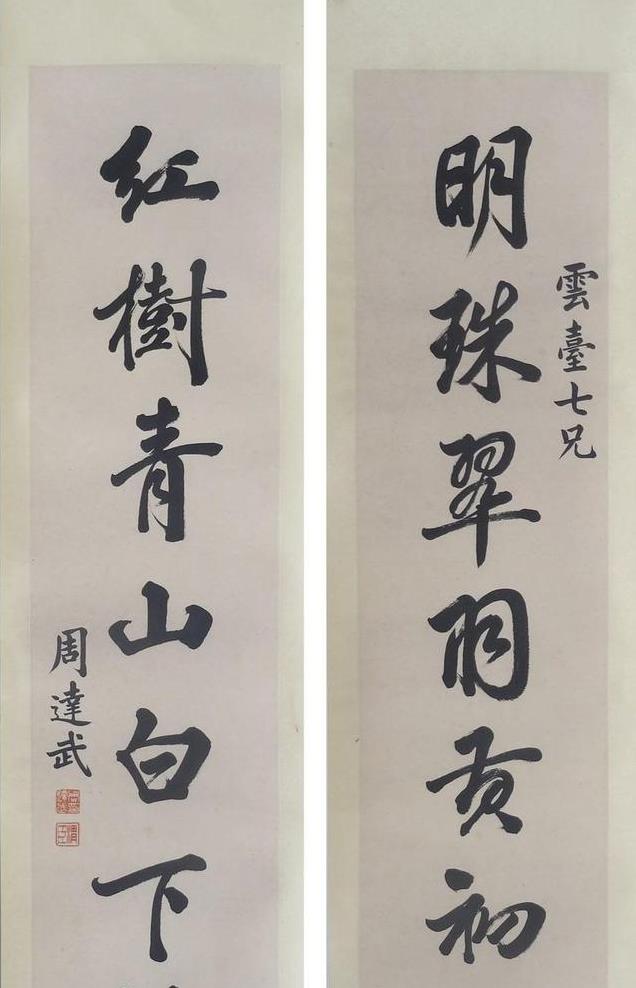 雲臺七兄
明珠翠羽貢初
紅樹青山白下
周達武